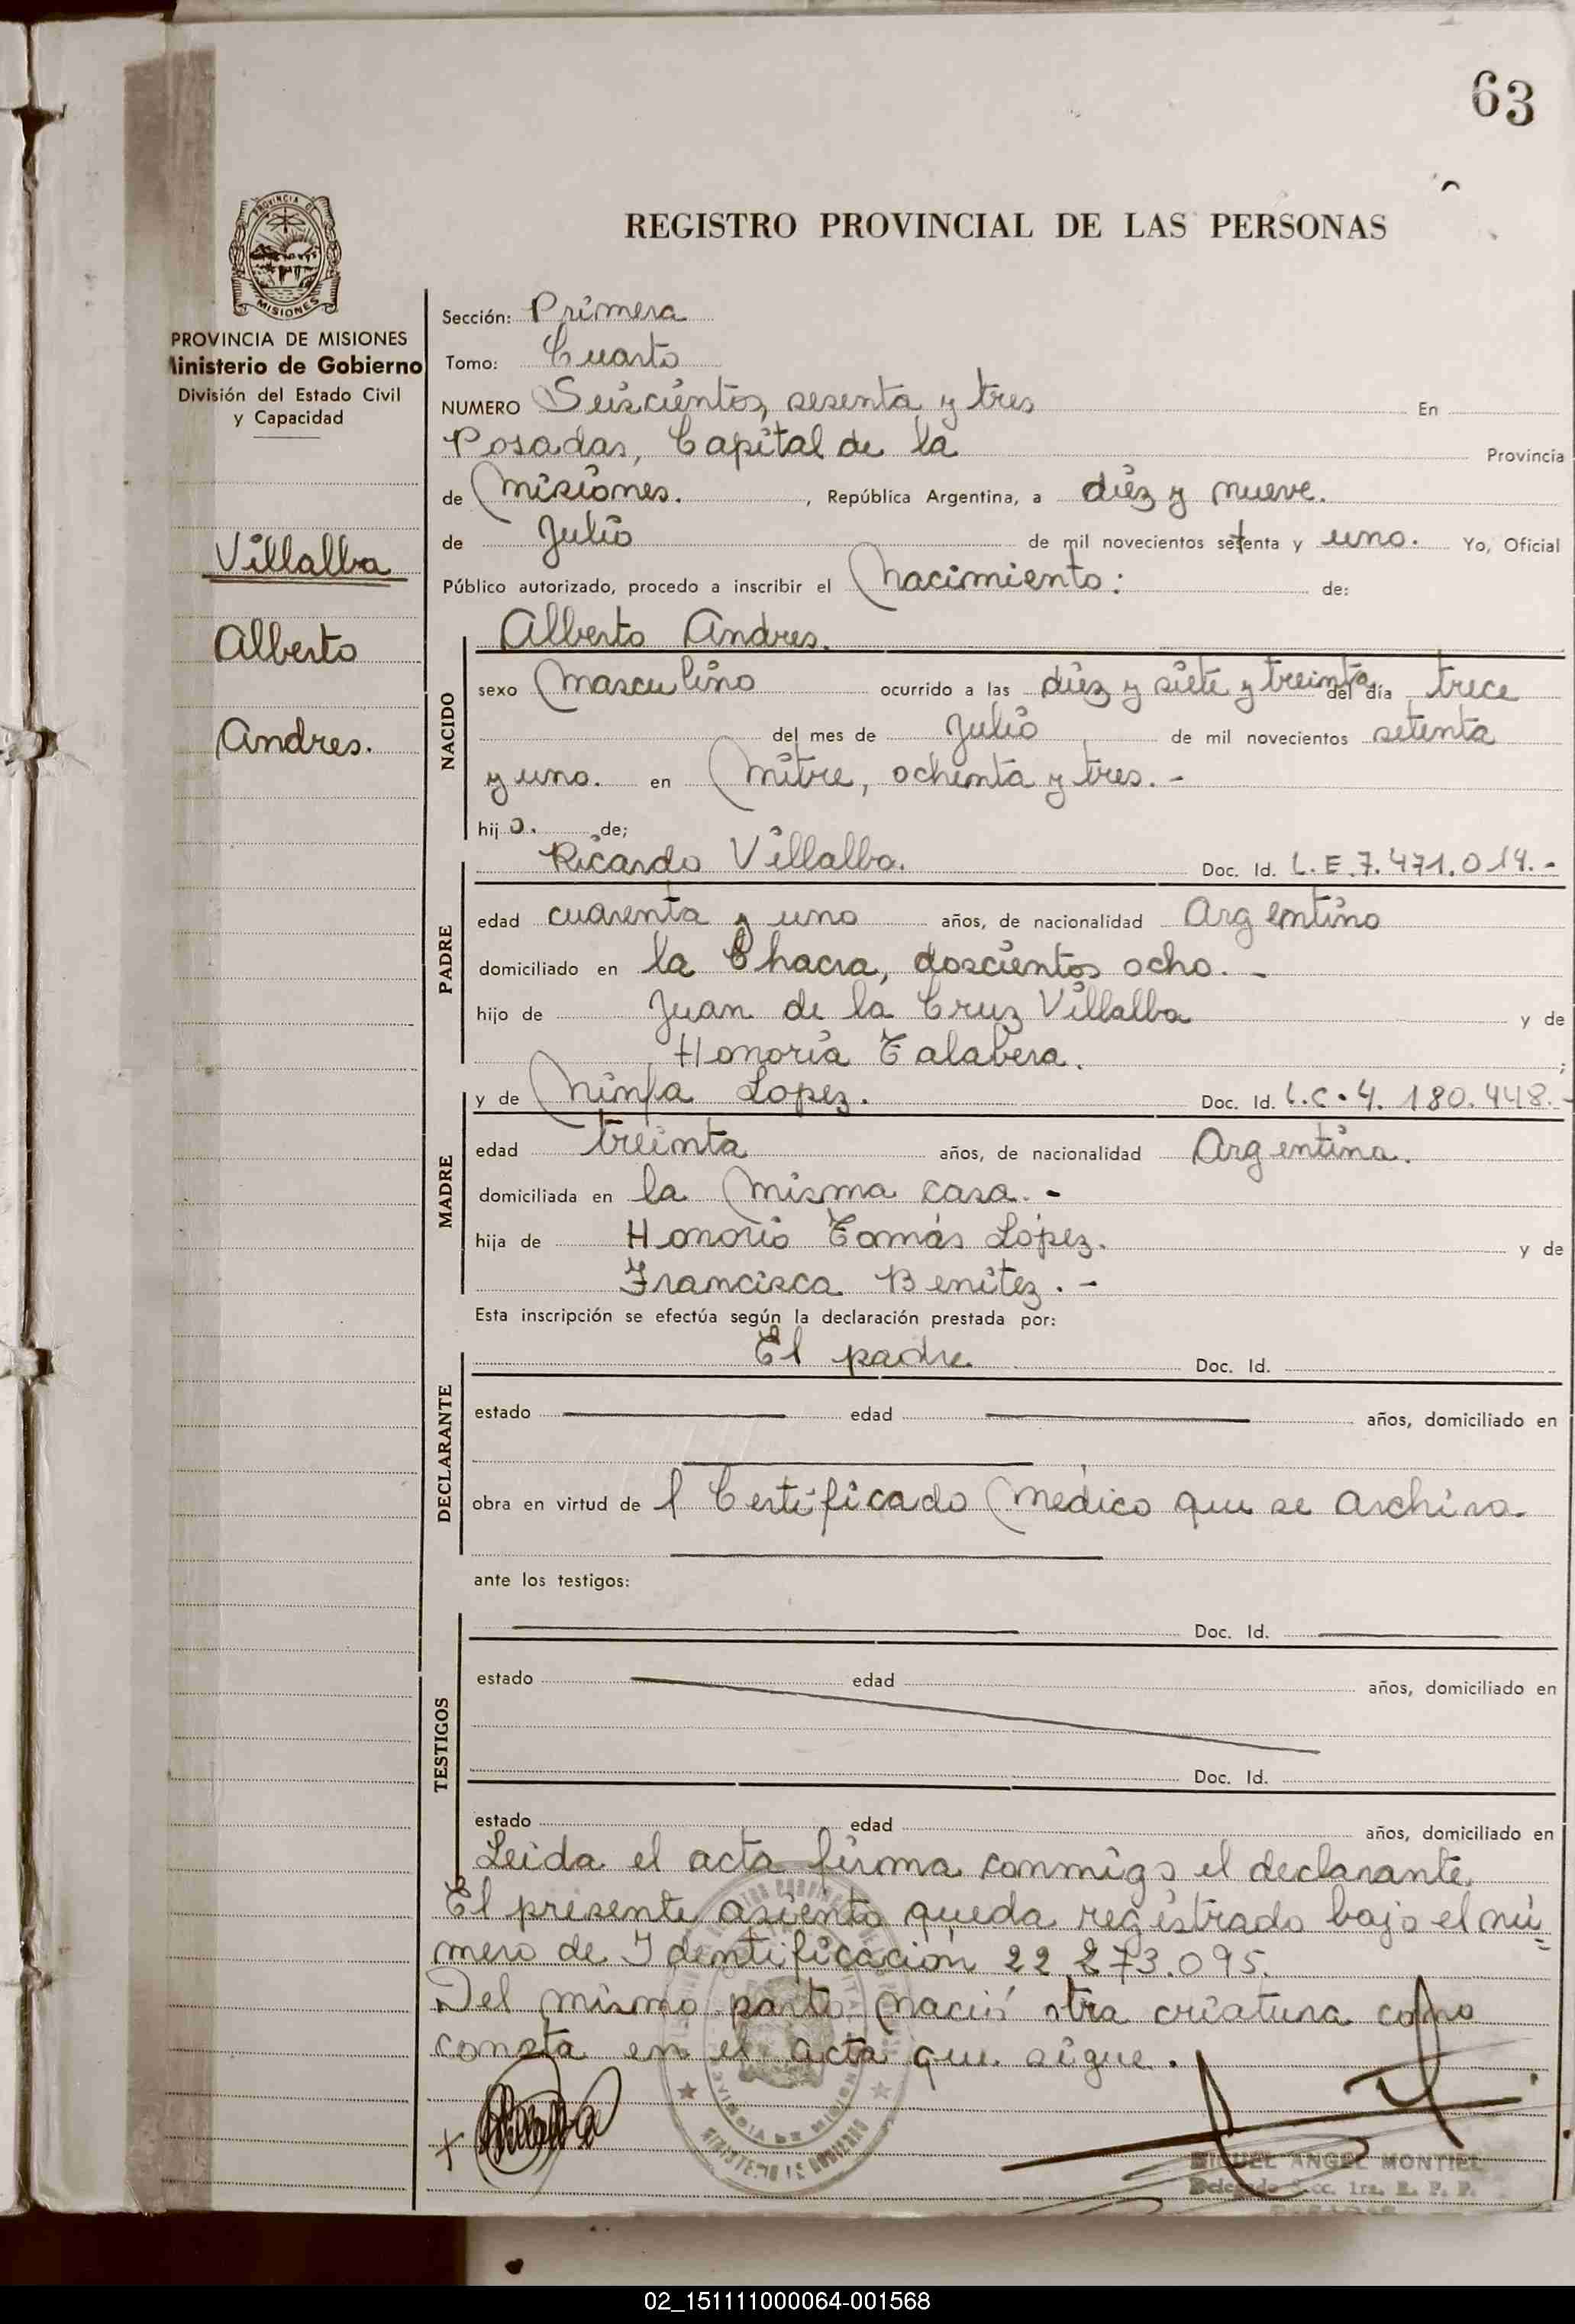 63
REGISTRO PROVINCIAL DE LAS PERSONAS
PROVINCIA DE MISIONES
Ministerio de Gobierno
División del Estado Civil
y Capacidad
Villalba
Alberto
Andres.
Sección: Primera
Tomo: Cuarto
NUMERO Seiscientos, sesenta y tres En
Posadas, Capital de la Provincia
de Misiones. , República Argentina, a diez y nueve.
de Julio de mil novecientos setenta y uno. Yo, Oficial
Público autorizado, procedo a inscribir el Nacimiento: de:
NACIDO
Alberto Andres.
sexo Masculino ocurrido a las diez y siete y treinta del día trece
del mes de Julio de mil novecientos setenta
y uno. en Mitre, ochenta y tres. -
hijo. de;
PADRE
Ricardo Villalba. Doc. Id. L.E.7.471.014.-
edad cuarenta y uno años, de nacionalidad Argentino
domiciliado en la Chacra, doscientos ocho. -
hijo de Juan de la Cruz Villalba y de
Honoria Talabera. ;
MADRE
y de Ninfa Lopez. Doc. Id. L.C.4.180.448.-
edad treinta años, de nacionalidad Argentina.
domiciliada en la misma casa. -
hija de Honorio Tomás López. y de
Francisca Benitez. -
Esta inscripción se efectúa según la declaración prestada por:
DECLARANTE
El padre Doc. Id.
estado edad años, domiciliado en
obra en virtud de l Certificado Médico que se archiva.
ante los testigos:
TESTIGOS
Doc. Id.
estado edad años, domiciliado en
Doc. Id.
estado edad años, domiciliado en
Leida el acta firma conmigo el declarante.
El presente asiento queda registrado bajo el nú=
mero de Identificación 22.273.095.
Del mismo parto nació otra criatura como
consta en el acta que sigue.
MIGUEL ANGEL MONTIEL
02_151111000064-001568